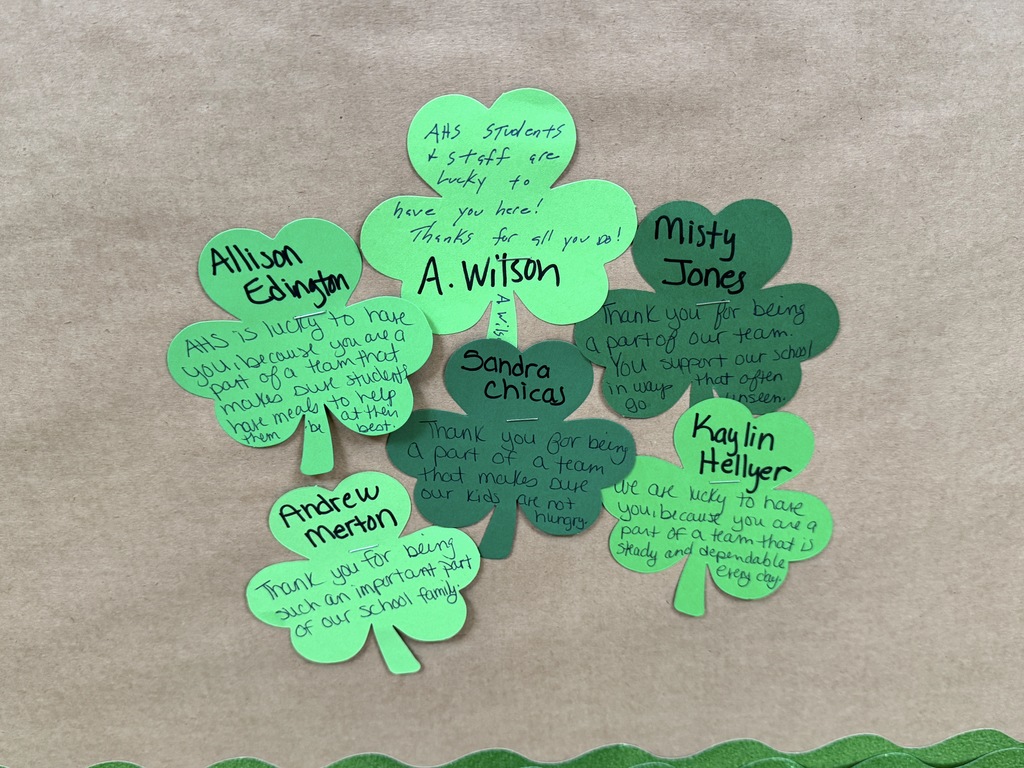 AHS Students
+ staff are
lucky to
have you here!
Thanks for all you do!
A. Wilson
A Wils
Allison
Edington
AHS is lucky to have
you because you are a
part of a team that
makes sure students
have meals to help
them be at their
best.
Misty
Jones
Thank you for being
a part of our team.
You support our school
in ways that often
go unseen.
Sandra
Chicas
Thank you for being
a part of a team
that makes sure
our kids are not
hungry.
Kaylin
Hellyer
We are lucky to have
you because you are a
part of a team that is
steady and dependable
every day.
Andrew
Merton
Thank you for being
such an important part
of our school family.